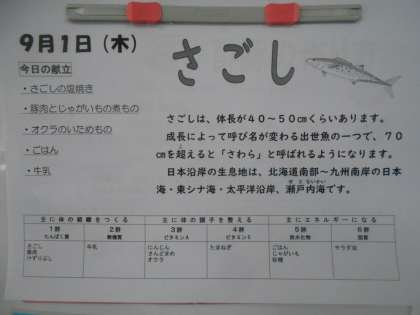 9月1日（木）
さごし
今日の献立
・さごしの塩焼き
・豚肉とじゃがいもの煮もの
・オクラのいためもの
・ごはん
・牛乳
さごしは、体長が４０～５０㎝くらいあります。
成長によって呼び名が変わる出世魚の一つで、７０
㎝を超えると「さわら」と呼ばれるようになります。
日本沿岸の生息地は、北海道南部～九州南岸の日本
海・東シナ海・太平洋沿岸、瀬戸内海です。
主に体の組織をつくる 主に体の調子を整える 主にエネルギーになる
1群 2群 3群 4群 5群 6群
たんぱく質 無機質 ビタミンA ビタミンC 炭水化物 脂質
さごし 牛乳 にんじん たまねぎ ごはん サラダ油
豚肉 さんどまめ じゃがいも
けずりぶし オクラ 砂糖